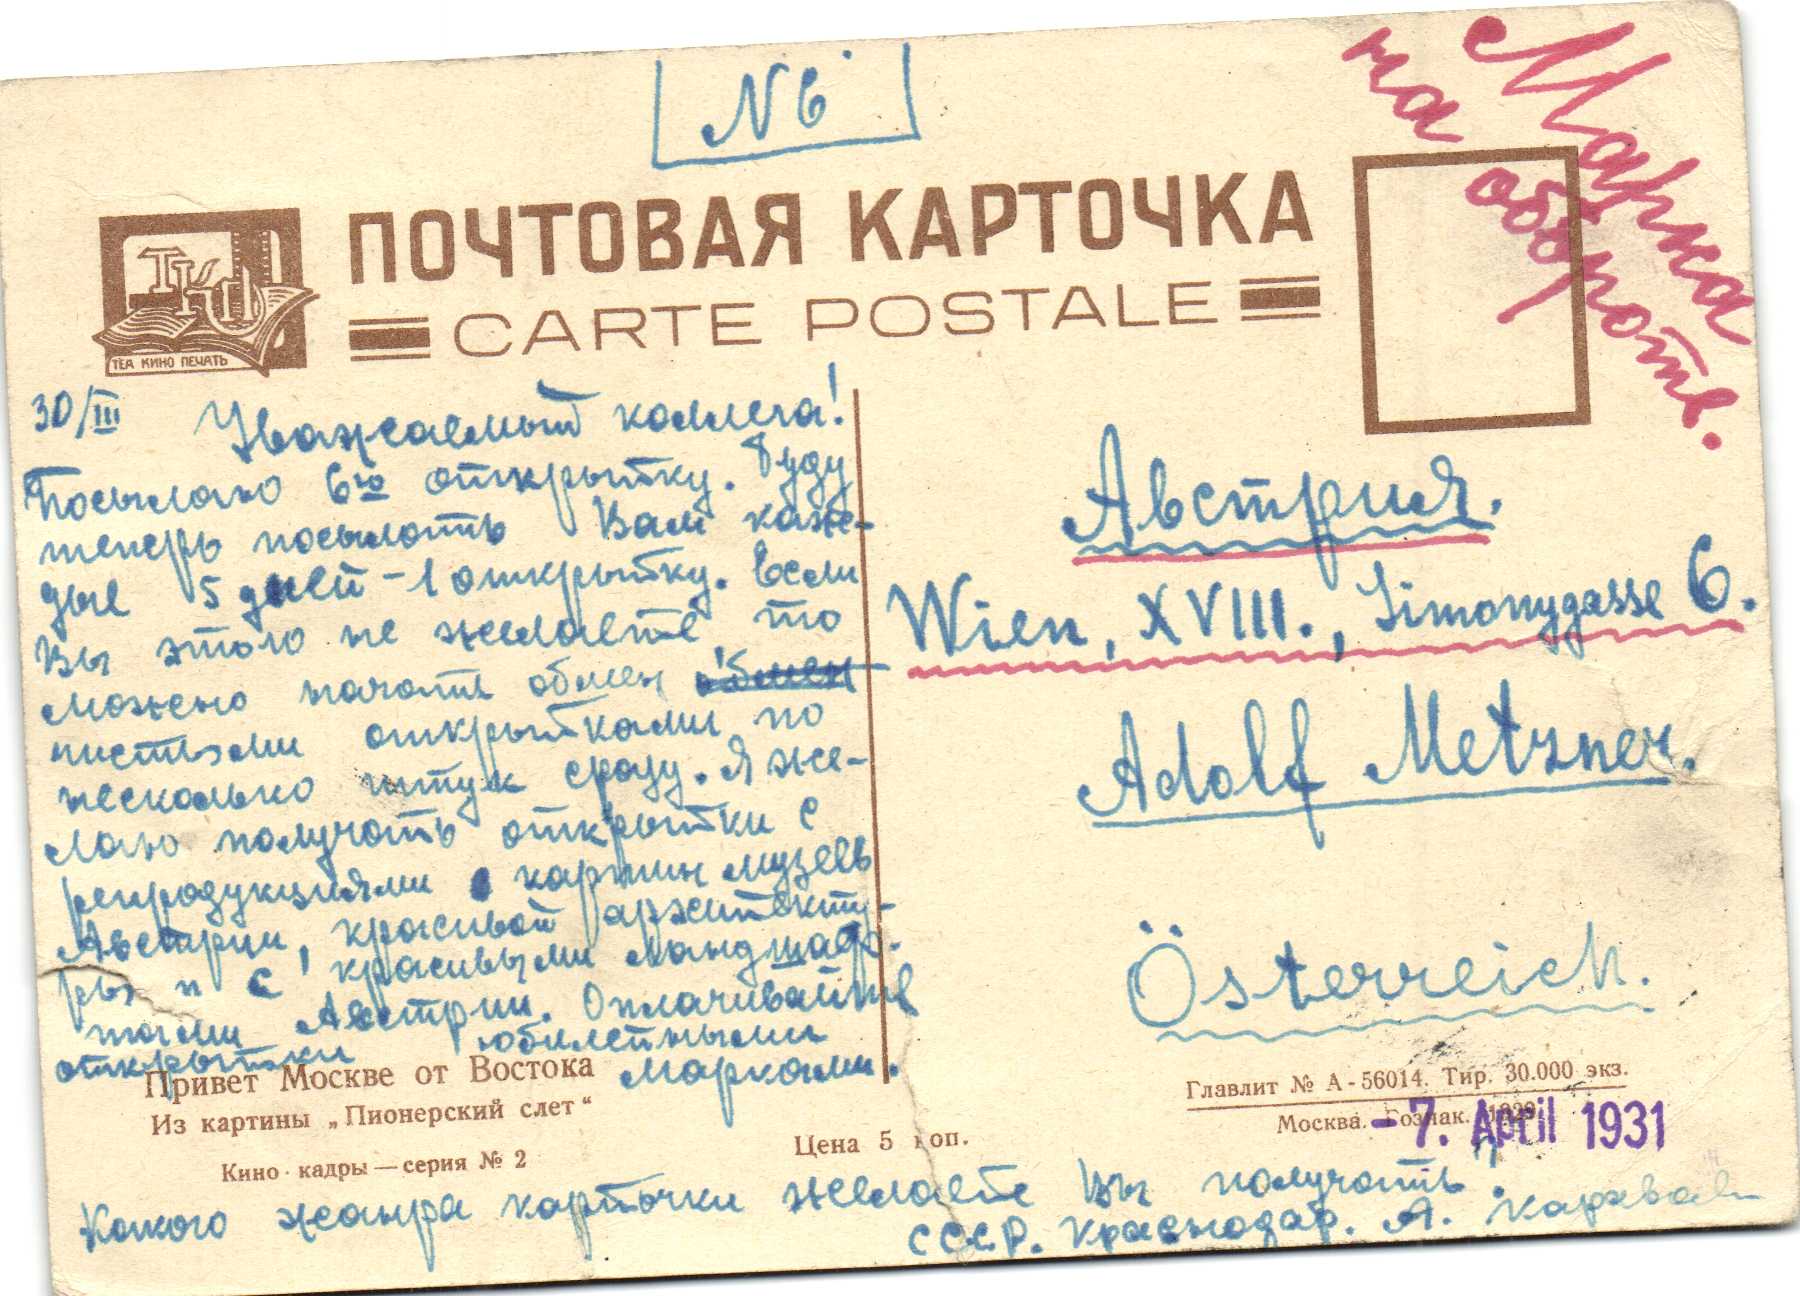 N 6
Марка
на обороте.
ПОЧТОВАЯ КАРТОЧКА
CARTE POSTALE
ТКП
ТЕА КИНО ПЕЧАТЬ
30/III Уважаемый коллега!
Посылаю 6ю открытку. Буду
теперь посылать Вам каж-
дые 5 дней - 1 открытку. Если
Вы этого не желаете, то
можено начать обмен обмен
пистьями открытками по
несколько штук сразу. Я же-
лаю получать открытки с
репродукциями картин музеев
Австрии, красивой архитекту-
ры и с красивыми ландшаф-
тами Австрии. Оплачивайте
открытки юбилейными
марками.
Австрия.
Wien, XVIII., Simonygasse 6.
Adolf Metzner.
Österreich.
Привет Москве от Востока
Из картины „Пионерский слет“
Кино-кадры — серия № 2
Цена 5 коп.
Главлит № А-56014. Тир. 30.000 экз.
Москва. Гознак. 1929.
-7. April 1931
Какого жанра карточки желаете Вы получать?
СССР. Краснодар. А.